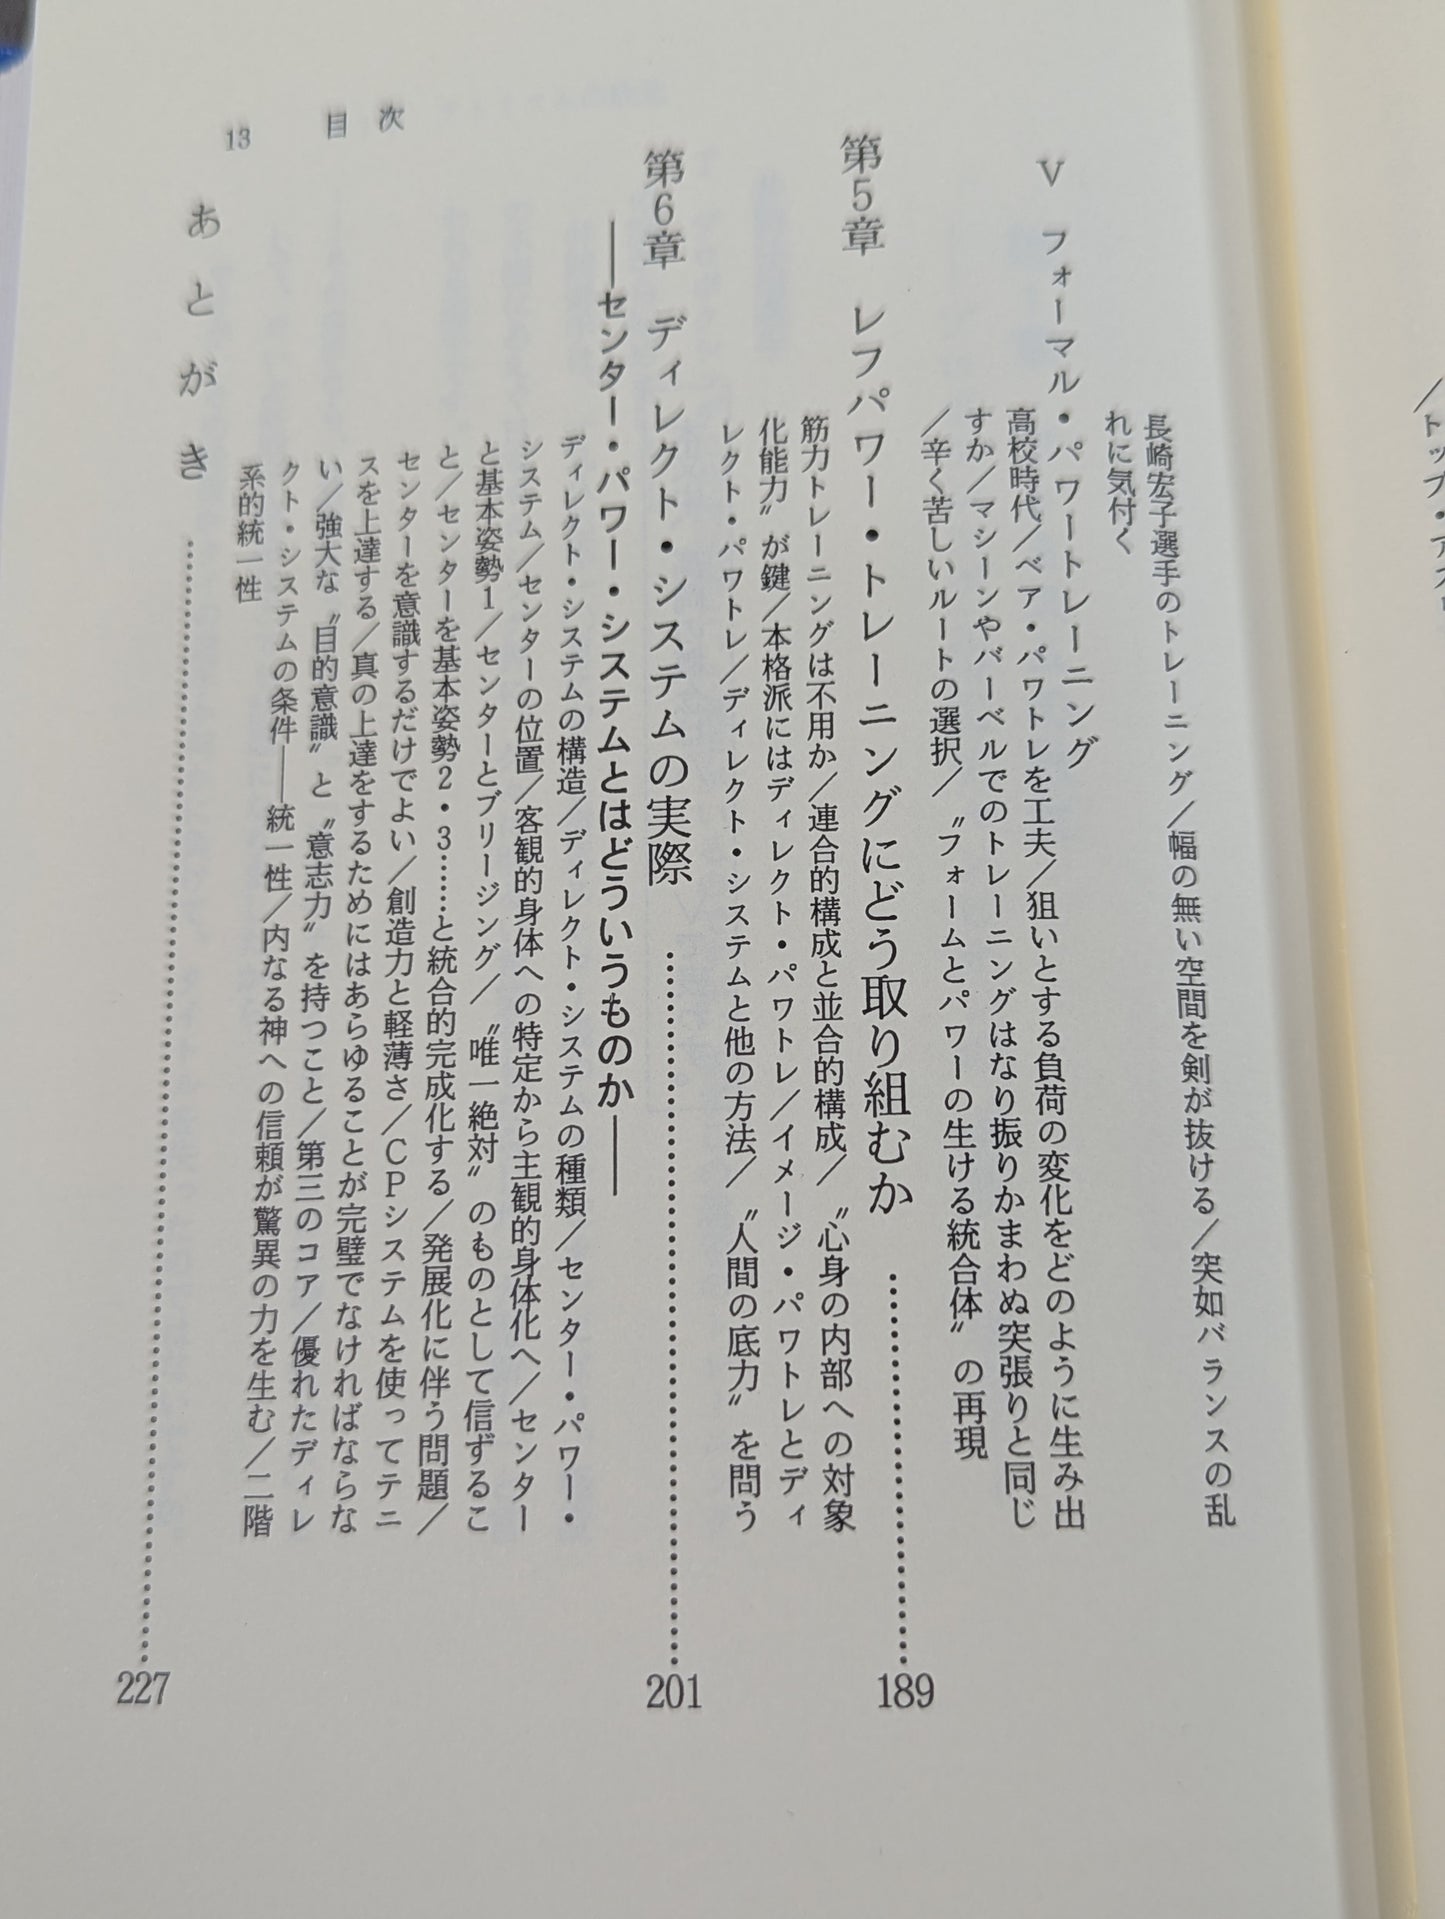 長崎宏子選手のトレーニング／幅の無い空間を剣が抜ける／突如バランスの乱
れに気付く
Ⅴ フォーマル・パワートレーニング
高校時代／ベア・パワトレを工夫／狙いとする負荷の変化をどのように生み出
すか／マシーンやバーベルでのトレーニングはなり振りかまわぬ突張りと同じ
／辛く苦しいルートの選択／〝フォームとパワーの生ける統合体〟の再現
第5章 レフパワー・トレーニングにどう取り組むか ………… 189
筋力トレーニングは不用か／連合的構成と並合的構成／〝心身の内部への対象
化能力〟が鍵／本格派にはディレクト・パワトレ／イメージ・パワトレとディ
レクト・パワトレ／ディレクト・システムと他の方法／〝人間の底力〟を問う
第6章 ディレクト・システムの実際 ………… 201
――センター・パワー・システムとはどういうものか――
ディレクト・システムの構造／ディレクト・システムの種類／センター・パワー・
システム／センターの位置／客観的身体への特定から主観的身体化へ／センター
と基本姿勢1／センターとブリージング／〝唯一絶対〟のものとして信ずるこ
と／センターを基本姿勢2・3……と統合的完成化する／発展化に伴う問題／
センターを意識するだけでよい／創造力と軽薄さ／CPシステムを使ってテニ
スを上達する／真の上達をするためにはあらゆることが完璧でなければならな
い／強大な〝目的意識〟と〝意志力〟を持つこと／第三のコア／優れたディレ
クト・システムの条件――統一性／内なる神への信頼が驚異の力を生む／二階
系的統一性
あとがき ………… 227
13 目次